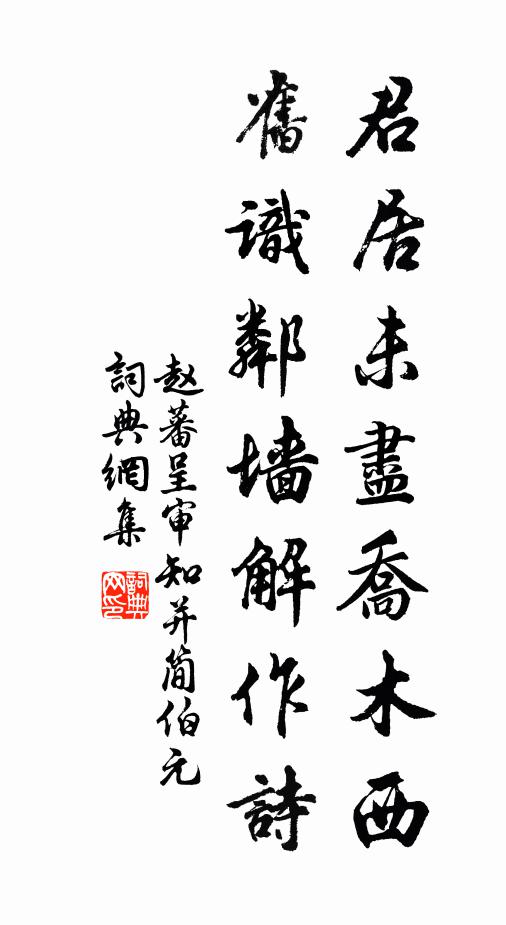 君居未盡喬木西
舊識鄰墙解作詩
赵蕃呈审知并简伯元
詞典網集
詞典
网印